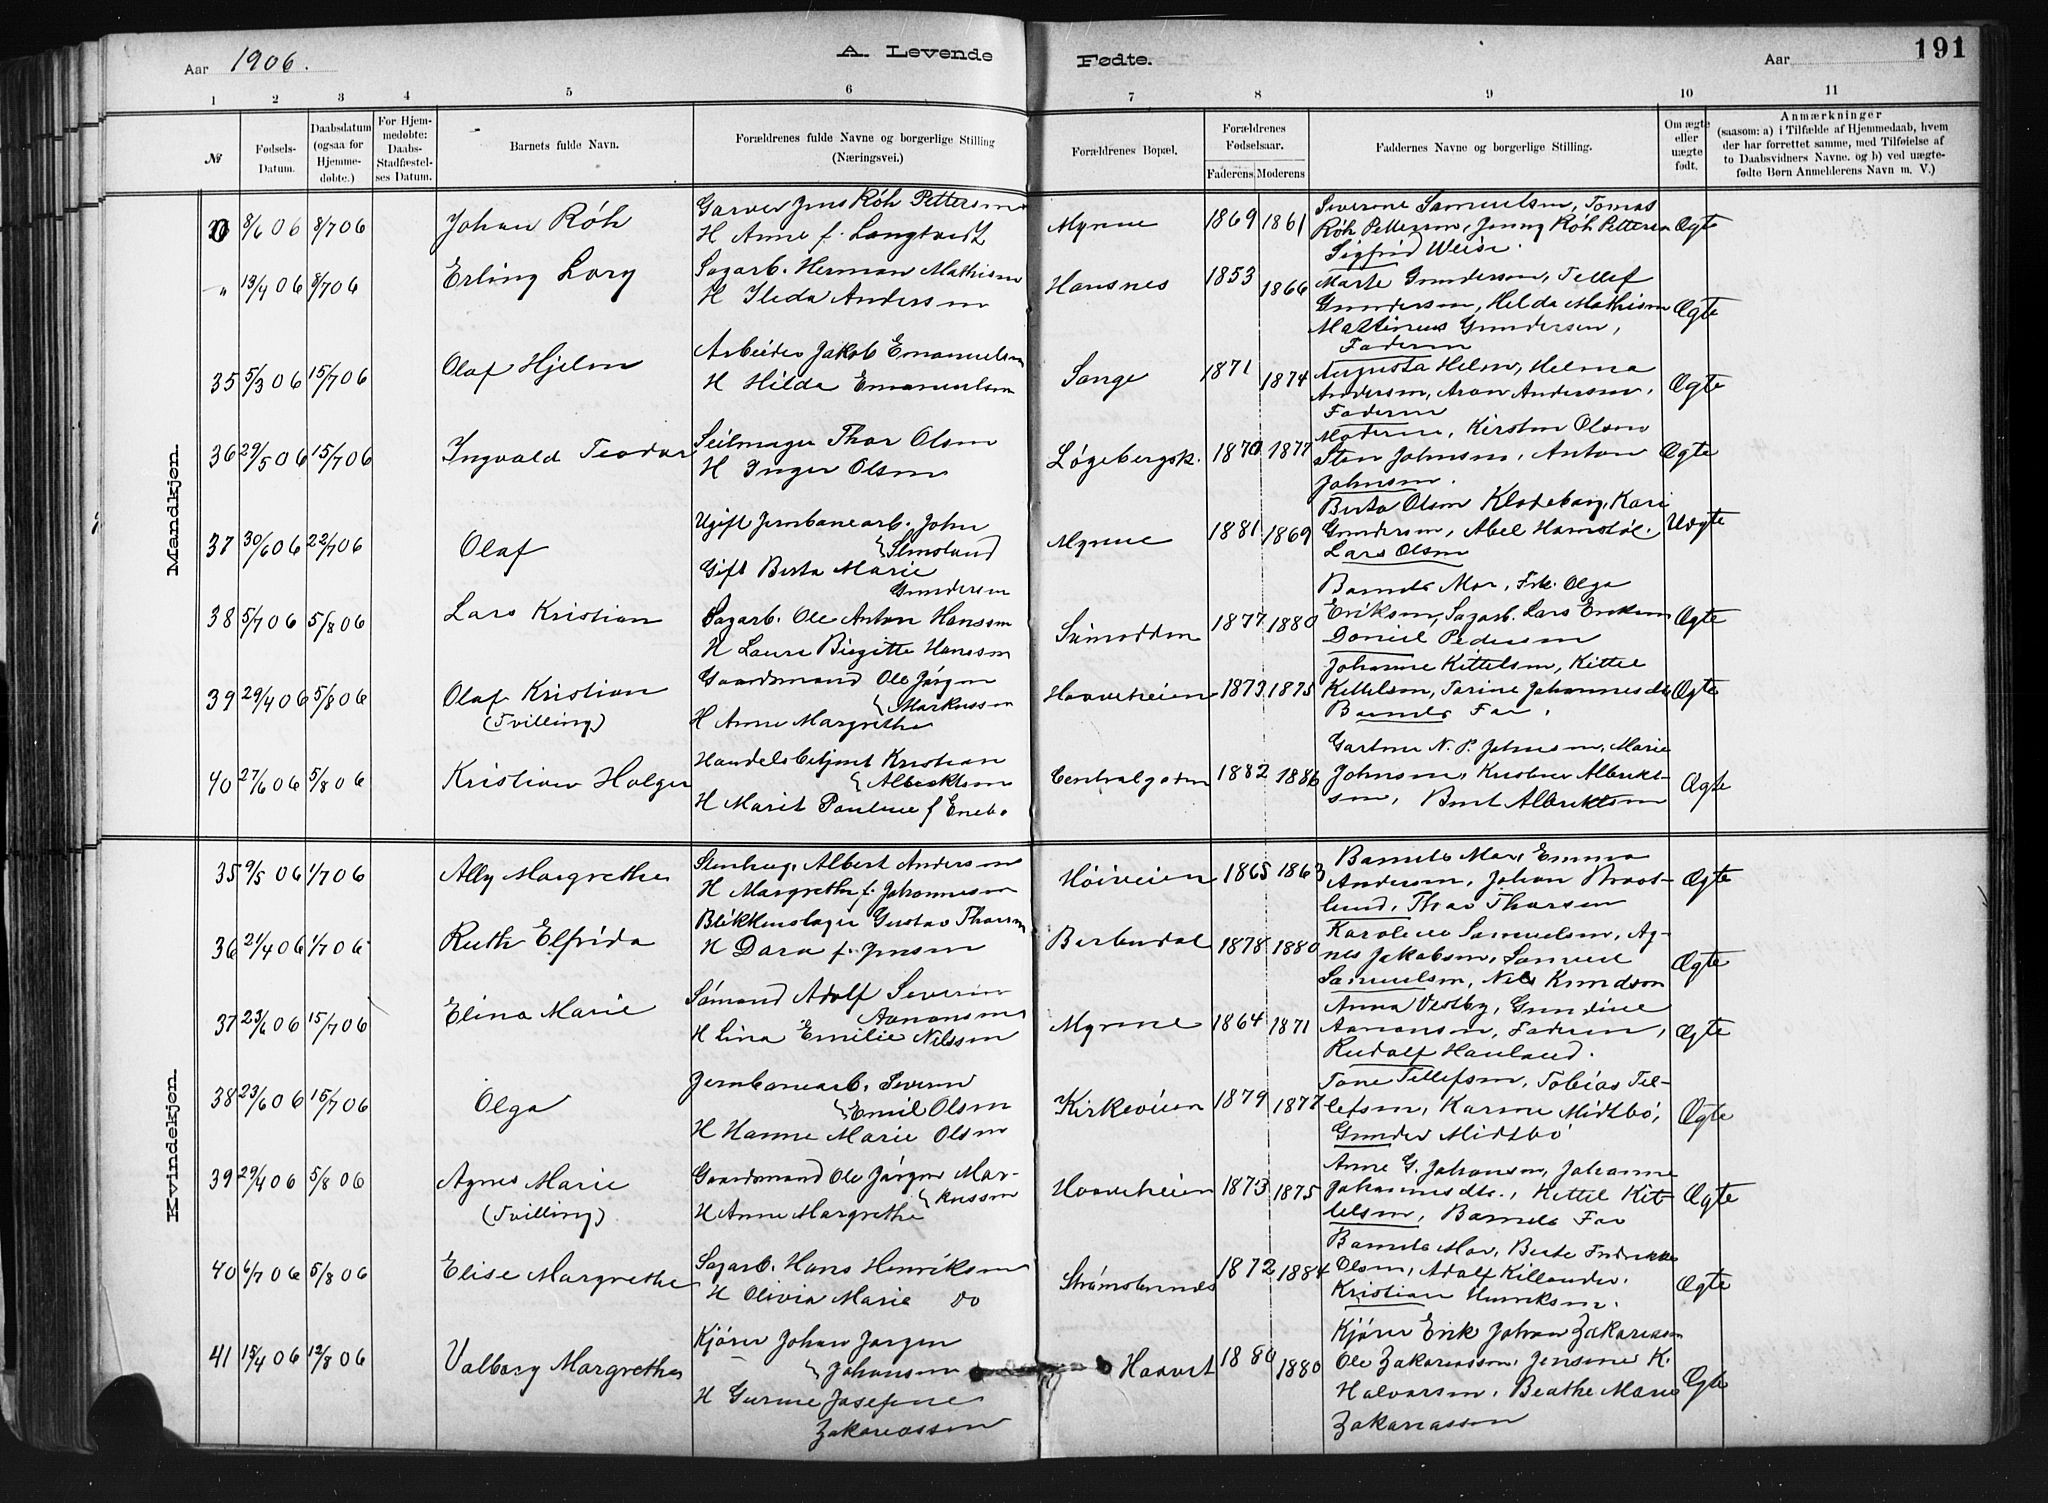 Aar 1906.
A. Levende Fødte.
Aar
191
1 2 3 4 5 6 7 8 9 10 11
№
Fødsels-Datum.
Daabsdatum (ogsaa for Hjemme-døbte.)
For Hjem-medøbte: Daabs-Stadfæstel-ses Datum.
Barnets fulde Navn.
Forældrenes fulde Navne og borgerlige Stilling (Næringsvei.)
Forældrenes Bopæl.
Forældrenes Fødselsaar.
Faderens Moderens
Faddernes Navne og borgerlige Stilling.
Om ægte eller uægte født.
Anmærkninger
(saasom: a) i Tilfælde af Hjemmedaab, hvem
der har forrettet samme, med Tilføielse af
to Daabsvidners Navne. og b) ved uægte-
fødte Børn Anmelderens Navn m. V.)
Mandkjøn.
8/6 06 8/7 06 Johan Röh
Garver Jens Röh Pettersen
H Anne f. Langtvedt
Myrene 1869 1861
Severine Samuelsen, Tomas
Röh Pettersen, Jenny Röh Pettersen
Sigfrid Weise.
Ægte
" 13/4 06 8/7 06 Erling Lory
Sagarb. Herman Mathisen
H Ilida Andersen
Hansnes 1853 1866
Marte Gundersen, Tellef
Gundersen, Helda Mathisen
Mattineus Gundersen,
Faderen
Ægte
35 5/3 06 15/7 06 Olaf Hjelm
Arbeider Jakob Emanuelsen
H Hilda Emanuelsen
Songe 1871 1874
Augusta Helm, Helma
Andersen, Aron Andersen,
Faderen
Ægte
36 29/5 06 15/7 06 Ingvald Teodor
Seilmager Thor Olsen
H Inger Olsen
Løgebergsk. 1870 1877
Moderen, Kirsten Olsen
Sten Johnsen, Anton
Johnsen.
Ægte
37 30/6 06 22/7 06 Olaf
Ugift Jernbanearb. John
Slinsland
Gift Berta Marie
Gundersen
Myrene 1881 1869
Berta Olsen Klodeborg, Kari
Gundersen, Abel Hamstöl.
Lars Olsen
Uægte
38 5/7 06 5/8 06 Lars Kristian
Sagarb. Ole Anton Hansen
H Laura Birgitte Hansen
1877 1880
Barnets Mor, Frk. Olga
Eriksen, Sagarb. Lars Eriksen
Daniel Pedersen
Ægte
39 29/4 06 5/8 06 Olaf Kristian
(Tvilling)
Gaardmand Ole Jörgen
Markussen
H Anne Margrethe
Haaveheien 1873 1875
Johanne Kittelsen, Kittel
Kittelsen, Tarine Johannesdtr
Barnets Far.
Ægte
40 27/6 06 5/8 06 Kristian Holger
Handelsbetjent Kristian
Albrektsen
H Marit Pauline f Enebo
Centralgaden 1882 1886
Gartner N. P. Johnsen, Marie
Johnsen, Kristine Albrekt-
sen, Berit Albrektsen
Ægte
Kvindekjøn.
35 9/5 06 1/7 06 Ally Margrethe
Stenhug. Albert Andersen
H Margrethe f. Johannesen
Høiveien 1865 1863
Barnets Mor, Emma
Andersen, Johan
lund, Thor Thorsen
Ægte
36 21/4 06 1/7 06 Ruth Elfrida
Blikkenslager Gustav Thorsen
H Dora f. Jensen
Barbudal 1878 1880
Karoline Samuelsen, Ag-
nes Jakobsen, Samuel
Samuelsen, Nils Knudson
Ægte
37 23/6 06 15/7 06 Elina Marie
Sömand Adolf Severin
Aanonsen
H Lina Emilie Nilssen
Myrene 1864 1871
Anna Vestby, Gundine
Aanonsen, Faderen,
Rudolf Hauland.
Ægte
38 23/6 06 15/7 06 Olga
Jernbanearb. Severin
Emil Olsen
H Hanne Marie Olsen
Kirkeveien 1879 1877
Tone Tellefsen, Tobias Tel-
lefsen, Karine Midtbö,
Gunder Midtbö
Ægte
39 29/4 06 5/8 06 Agnes Marie
(Tvilling)
Gaardmand Ole Jörgen Mar-
kussen
H Anne Margrethe
Haaveheien 1873 1875
Anne G. Johansen, Johanne
Johannesdtr., Kittel Kit-
telsen, Barnets Far
Ægte
40 6/7 06 5/8 06 Elise Margrethe
Sagarb. Hans Henriksen
H Olivia Marie do
Strömsbunes 1872 1884
Barnets Mor, Berte Fredrikke
Olsen, Adolf Killander.
Kristian Henriksen.
Ægte
41 15/4 06 12/8 06 Valborg Margrethe
Kjører Johan Jørgen
Johansen
H Gurine Josefine
Zakariassen
Haavet 1880 1880
Kjører Erik Johan Zakariassen
Ole Zakariassen, Jensine K.
Halvorsen, Beathe Marie
Zakariassen
Ægte